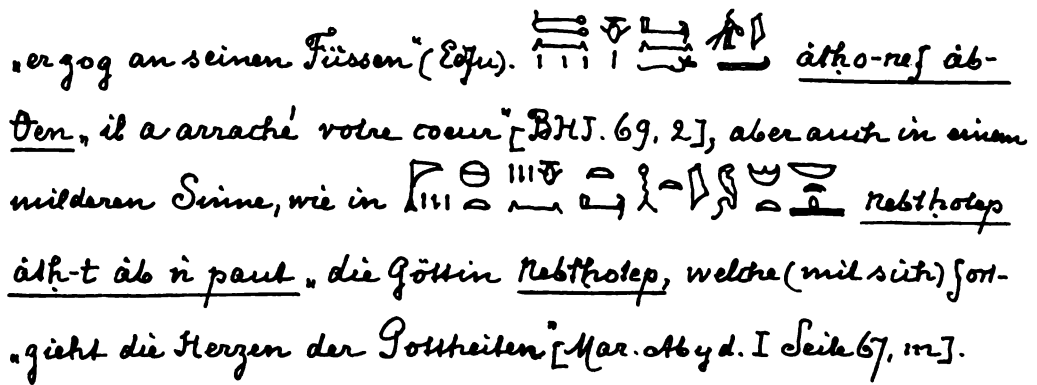 „er zog an seinen Füssen“ (Edfu). åtḥo-nef åb-
ten „il a arraché votre coeur“ [BHJ. 69, 2], aber auch in einem
milderen Sinne, wie in nebtḥotep
åtḥ-t åb ṅ paut „die Göttin Nebtḥotep, welche (mit sich) fort-
„zieht die Herzen der Gottheiten“ [Mar. Abyd. I Seite 67, m].